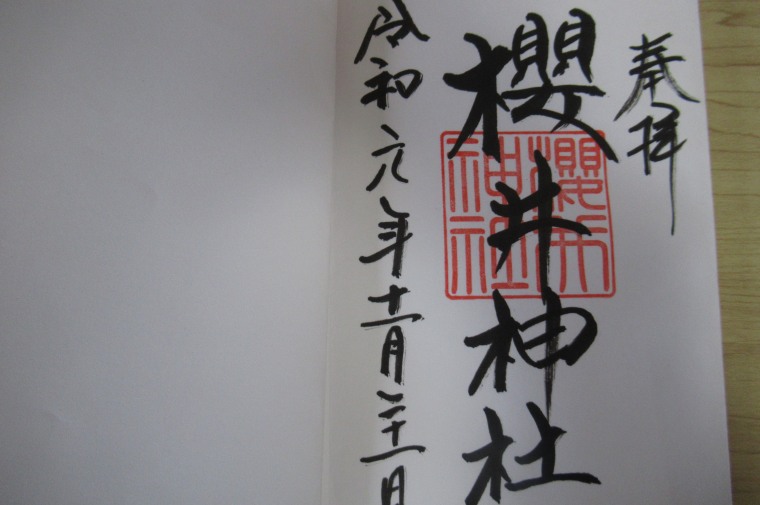 奉拝
櫻井神社
櫻井
神社
令和元年十一月二十一日